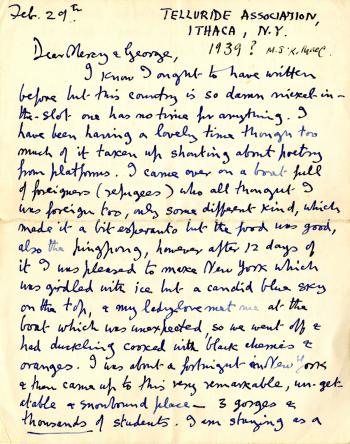 Feb. 29th.
TELLURIDE ASSOCIATION,
ITHACA, N.Y.
1939?
Dear Mercy & George,
I know I ought to have written
before but this country is so damn nickel-in-
the-slot one has no time for anything. I
have been having a lovely time though too
much of it taken up shouting about poetry
from platforms. I came over on a boat full
of foreigners (refugees) who all thought I
was foreign too, only some different kind, which
made it a bit esperanto but the food was good,
also the pingpong, however after 12 days of
it I was pleased to make New York which
was girdled with ice but a candid blue sky
on the top, & my ladylove met me at the
boat which was unexpected, so we went off &
had duckling cooked with black cherries &
oranges. I was about a fortnight in New York
& then came up to this very remarkable, un-get-
atable & snowbound place — 3 gorges &
thousands of students. I am staying as a